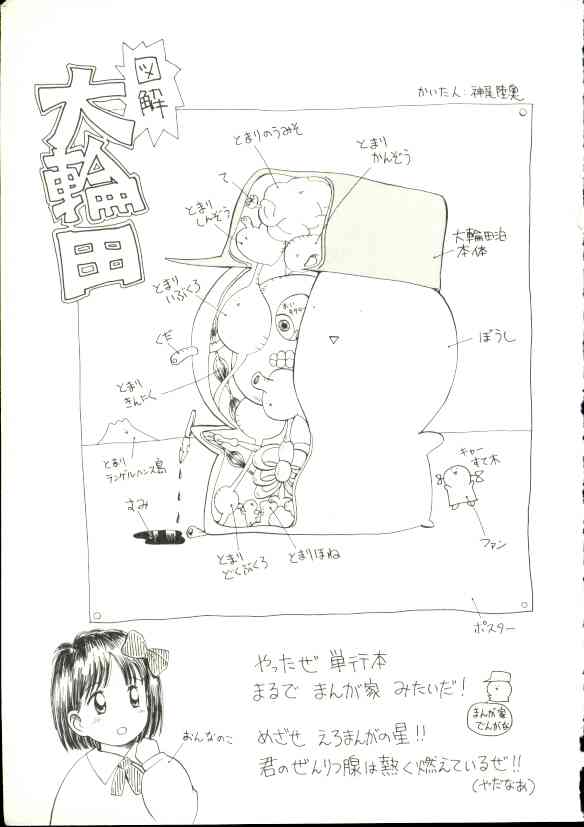 図解
大輪田
かいたん：神尾陸奥
とまりのうみそ
とまり
かんぞう
て
とまり
しんぞう
大輪田泊
本体
とまり
いぶくろ
ぼうし
くだ
とまり
きんにく
とまり
ランゲルハンス島
キャー
すて木
すみ
ファン
とまり
どくぶくろ
とまりほね
ポスター
やったぜ 単行本
まるで まんが家 みたいだ！
まんが家
でんがな
おんなのこ
めざせ えろまんがの星！！
君のぜんりつ腺は熱く燃えているぜ！！
（やだなあ）